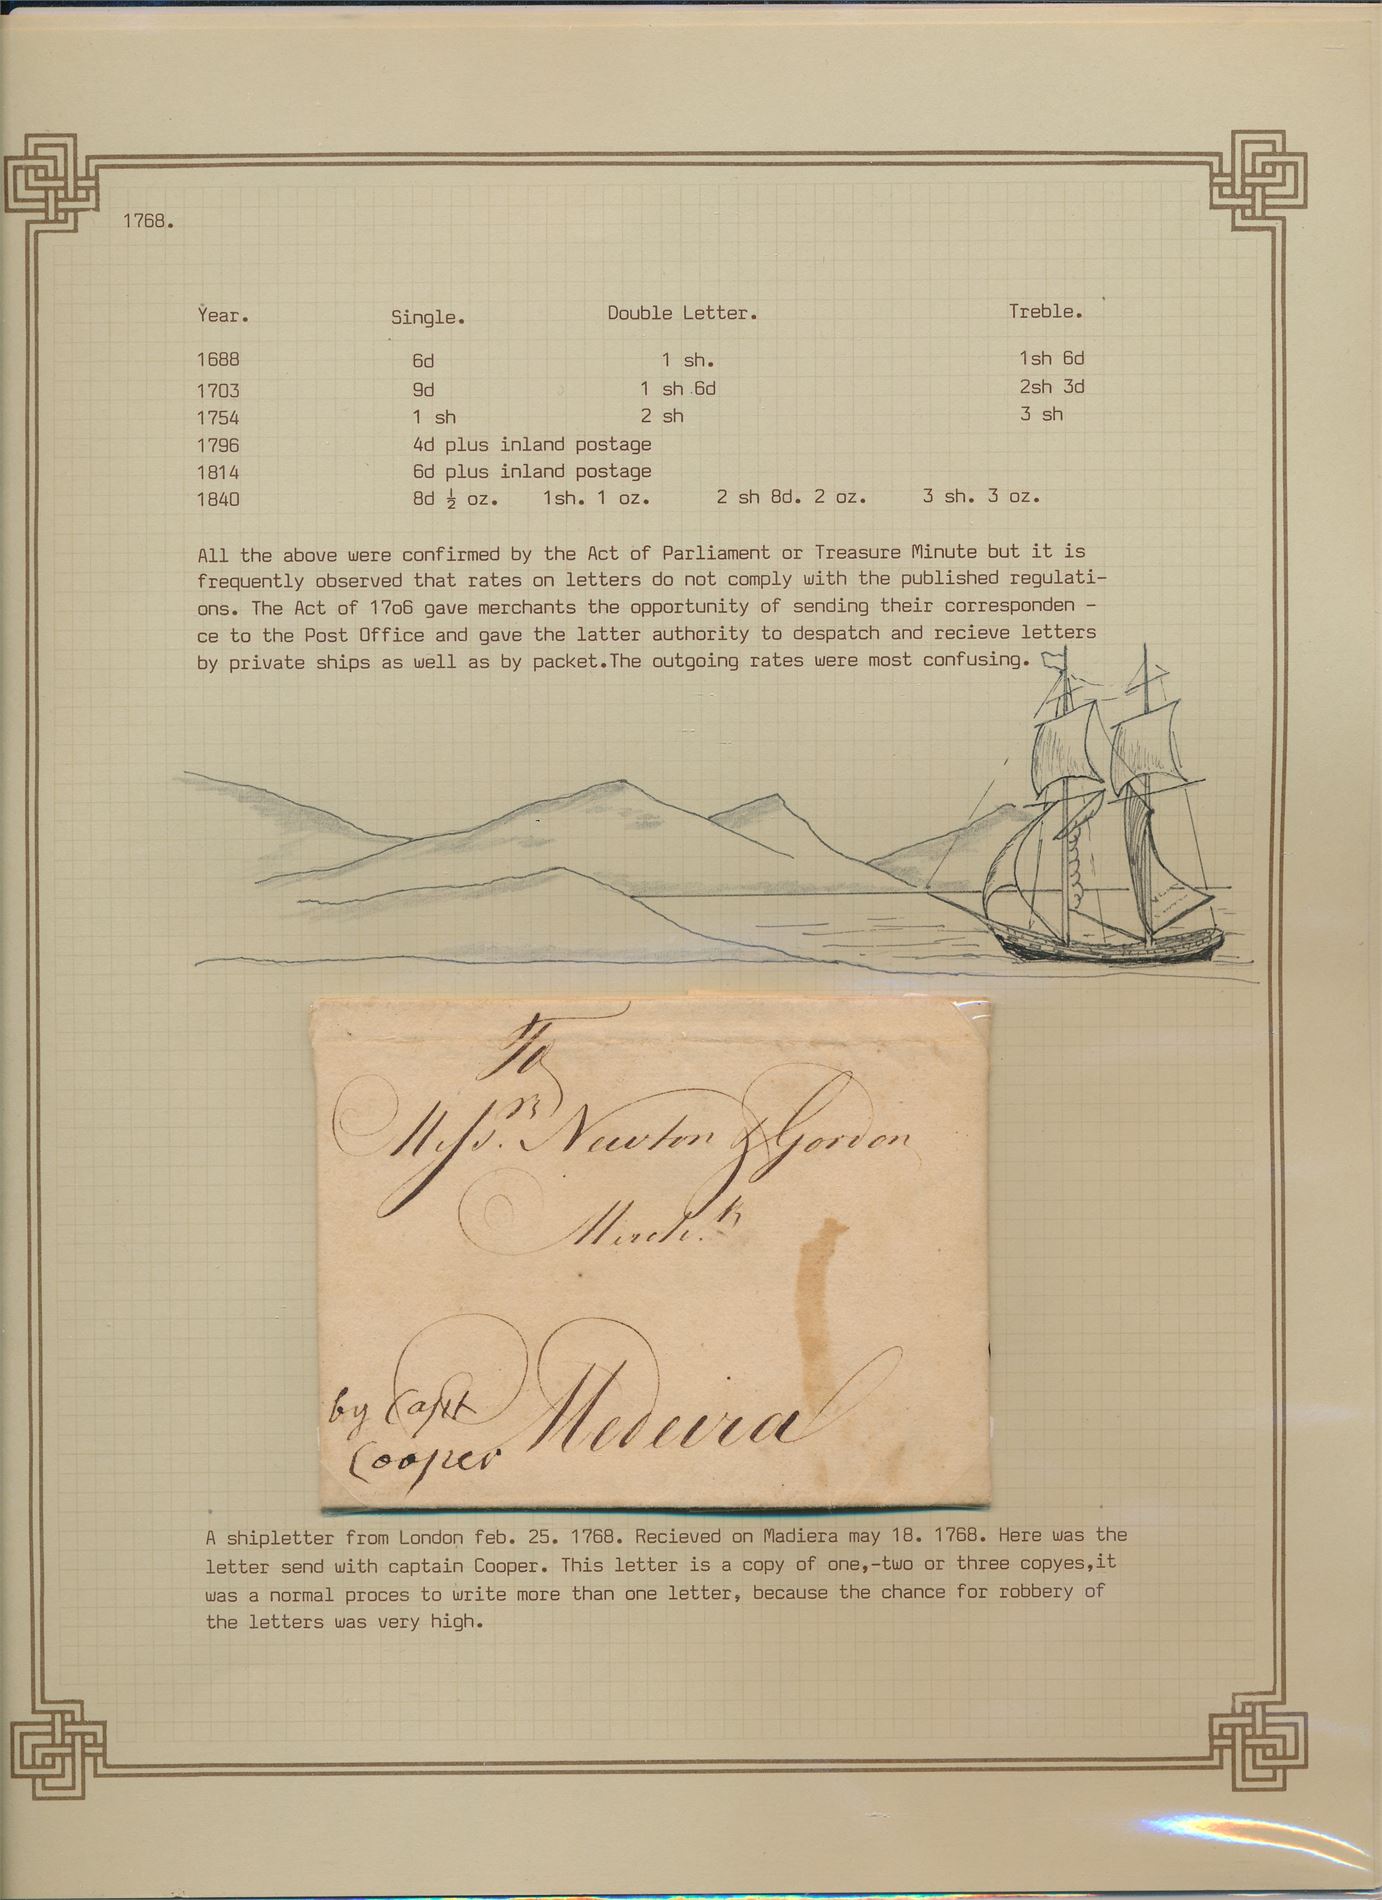 1768.
Year. Single. Double Letter. Treble.
1688 6d 1 sh. 1sh 6d
1703 9d 1 sh 6d 2sh 3d
1754 1 sh 2 sh 3 sh
1796 4d plus inland postage
1814 6d plus inland postage
1840 8d ½ oz. 1sh. 1 oz. 2 sh 8d. 2 oz. 3 sh. 3 oz.
All the above were confirmed by the Act of Parliament or Treasure Minute but it is
frequently observed that rates on letters do not comply with the published regulati-
ons. The Act of 17o6 gave merchants the opportunity of sending their corresponden -
ce to the Post Office and gave the latter authority to despatch and recieve letters
by private ships as well as by packet.The outgoing rates were most confusing.
To
Messrs. Newton & Gordon
Mercht.s
Medeira
by Capt
Cooper
A shipletter from London feb. 25. 1768. Recieved on Madiera may 18. 1768. Here was the
letter send with captain Cooper. This letter is a copy of one,-two or three copyes,it
was a normal proces to write more than one letter, because the chance for robbery of
the letters was very high.